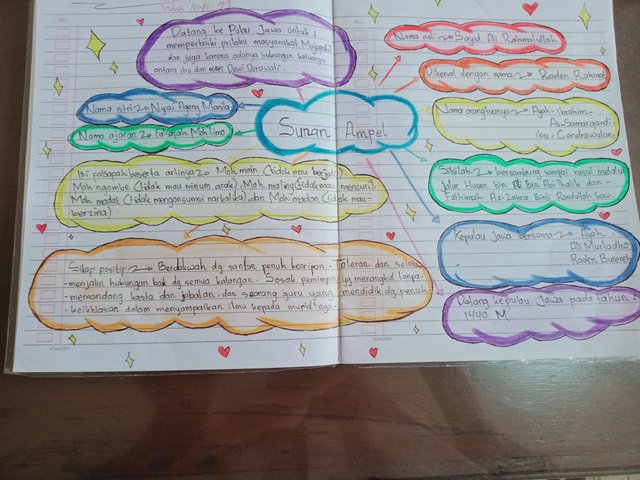 Datang ke Pulau Jawa untuk :
memperbaiki prilaku masyarakat Majapahit
dan juga karena adanya hubungan keluarga
antara ibu dan Dewi Darawati.
Nama istri → Nyai Ageng Manila
Nama ajaran → Falsafah Moh limo
Isi falsapah beserta artinya → Moh main (tidak mau berjudi)
Moh ngombe (tidak mau minum arak). Moh maling (tidak mau mencuri)
Moh madat (tidak mengonsumsi narkotika), dan Moh madon (tidak mau
berzina)
Sikap positip → Berdakwah dg santun penuh kearipan. Toleran dan selalu
-menjalin hubungan baik dg semua kalangan. Sosok pemimpin yg merangkul tanpa-
-memandang kasta dan jabatan. dan seorang guru yang mendidik dg penuh
-keikhlasan dalam menyampaikan ilmu kepada murid² nya.
Sunan Ampel
Nama asli → Sayid Ali Rahmatullah
Dikenal dengan nama → Raden Rahmat
Nama orangtuanya → Ayah : Ibrahim
As-Samarqandi
Ibu : Candrawulan
Silsilah → bersambung sampai rasul melalui
jalur Husen bin Ali Bin Abi thalib dan
Fathimah Az-Zahra Binti Rasulullah Saw
Kepulau Jawa bersama → Ayah
Ali Murtadho
Raden Burereh
Datang kepulau Jawa pada tahun
1440 M